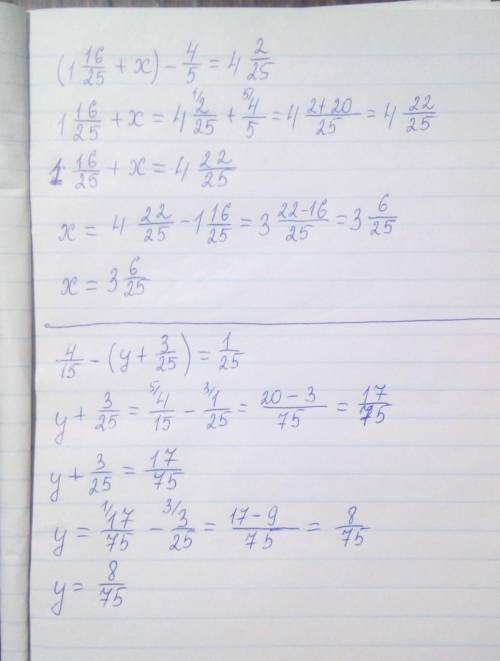 (1 16/25 + x) - 4/5 = 4 2/25
1 16/25 + x = 4 ¹⁄2/25 + ⁵⁄4/5 = 4 2+20/25 = 4 22/25
1 16/25 + x = 4 22/25
x = 4 22/25 - 1 16/25 = 3 22-16/25 = 3 6/25
x = 3 6/25
4/15 - (y + 3/25) = 1/25
y + 3/25 = ⁵⁄4/15 - ³⁄1/25 = 20-3/75 = 17/75
y + 3/25 = 17/75
y = ¹⁄17/75 - ³⁄3/25 = 17-9/75 = 8/75
y = 8/75